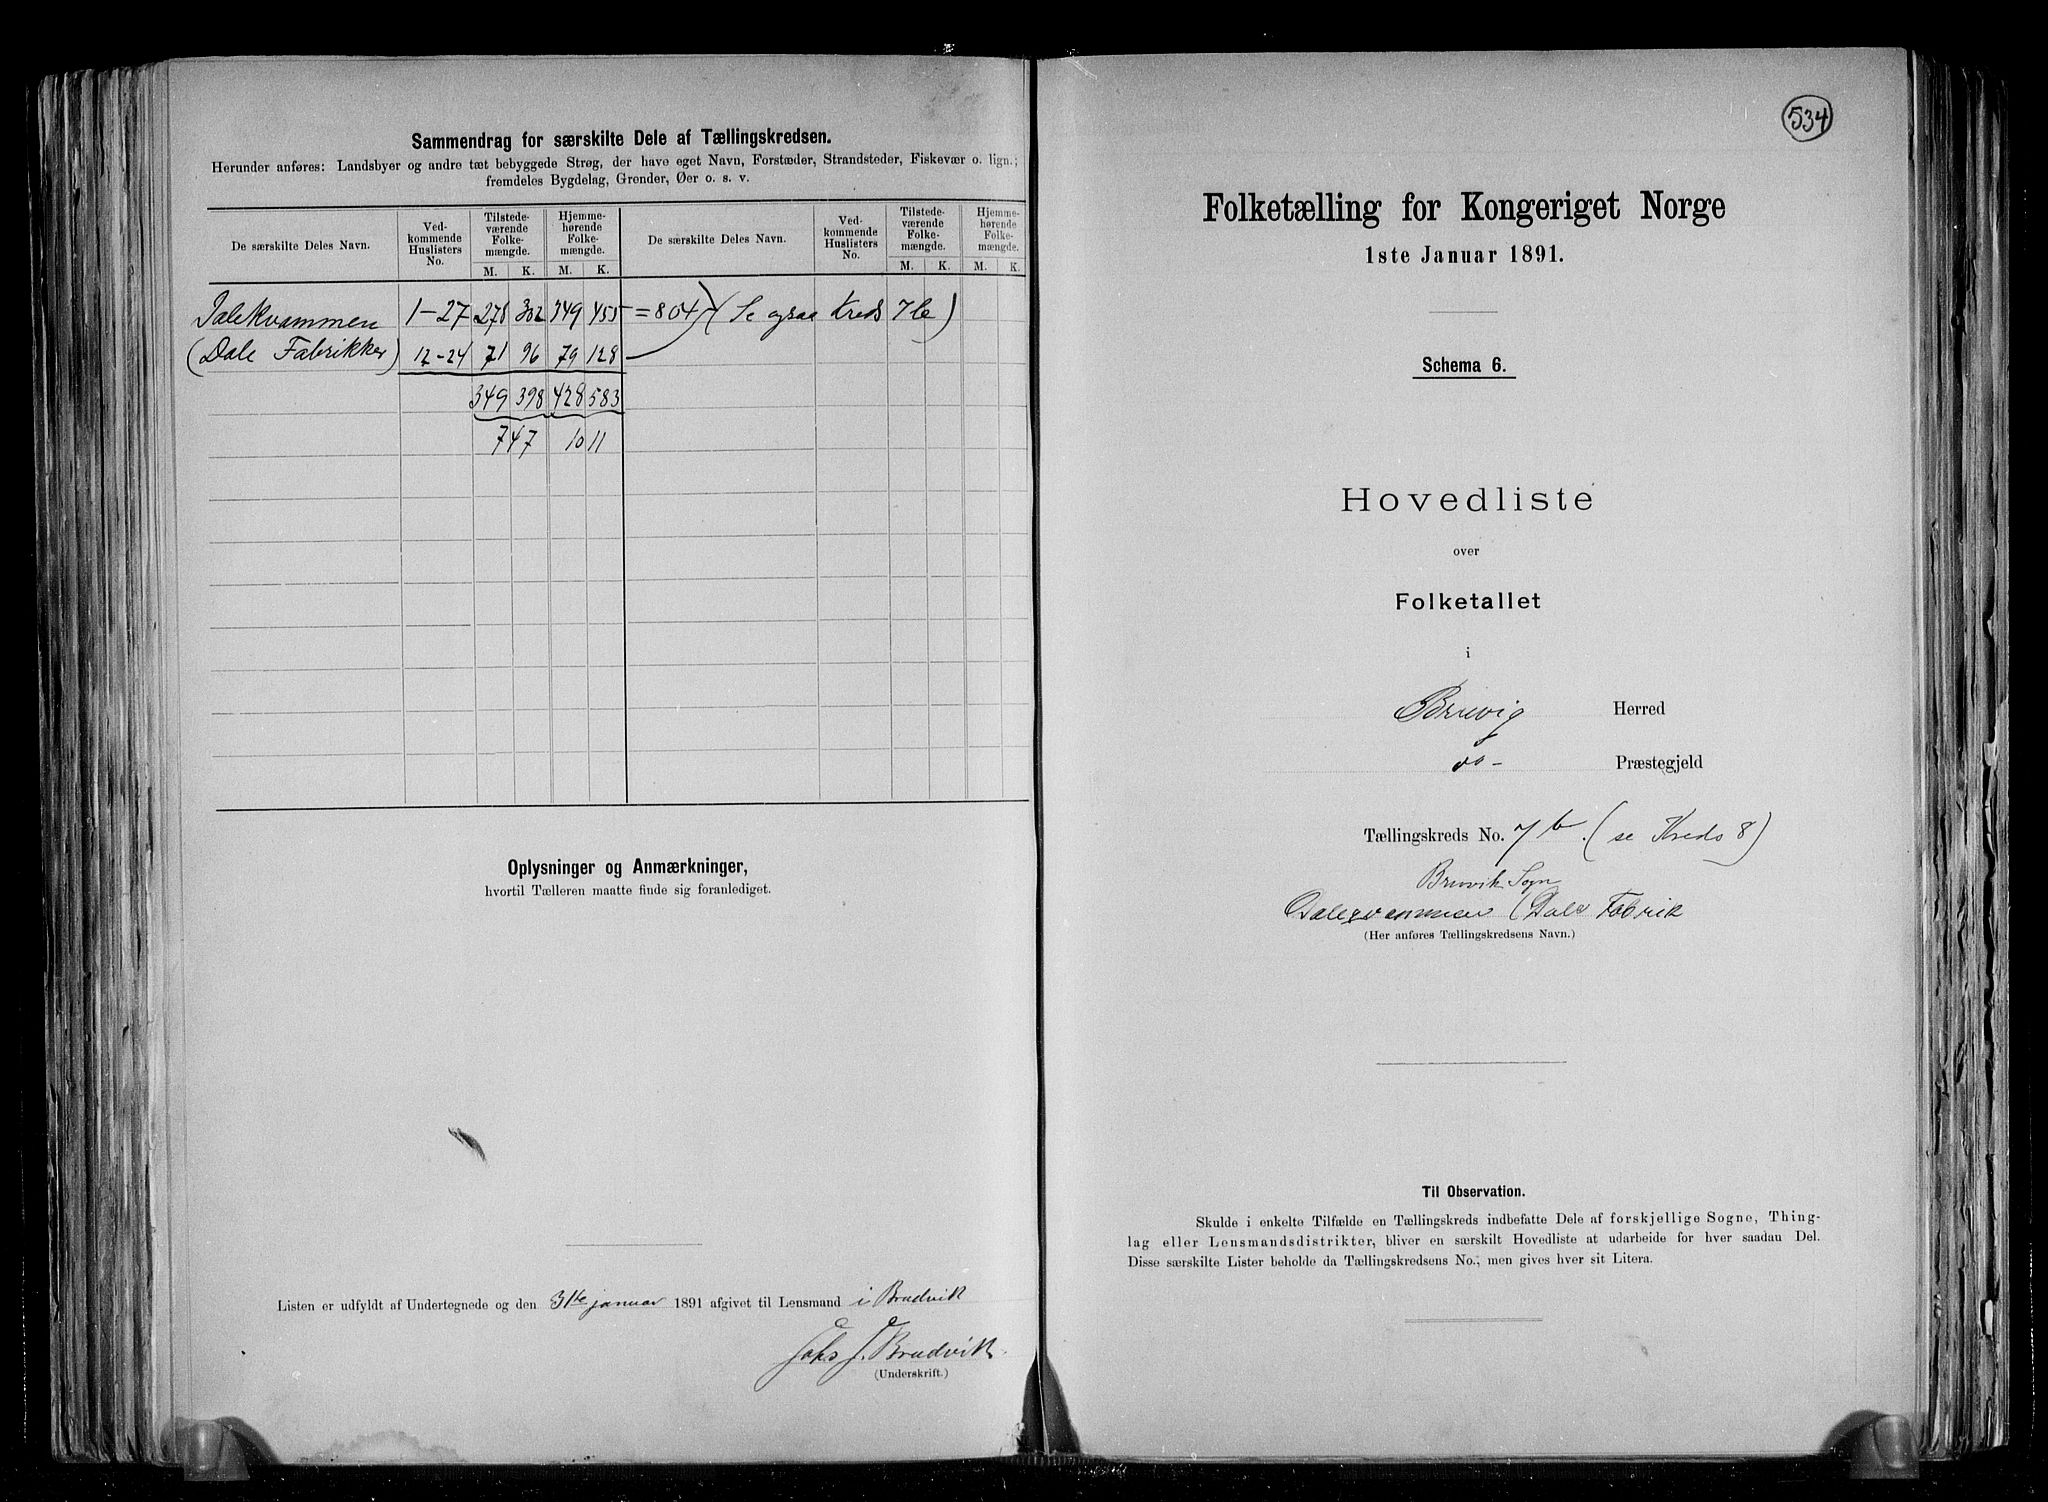 Sammendrag for særskilte Dele af Tællingskredsen.
Herunder anføres: Landsbyer og andre tæt bebyggede Strøg, der have eget Navn, Forstæder, Strandsteder, Fiskevær o. lign.;
fremdeles Bygdelag, Grender, Øer o. s. v.
De særskilte Deles Navn. Ved-kommende Huslisters No. Tilstede-værende Folke-mængde. Hjemme-hørende Folke-mængde. De særskilte Deles Navn. Ved-kommende Huslisters No. Tilstede-værende Folke-mængde. Hjemme-hørende Folke-mængde.
M. K. M. K. M. K. M. K.
Dalekvammen 1-27 278 302 349 455 =804 (Se ogsaa Kreds 7b)
(Dale Fabrikker) 12-24 71 96 79 128
349 398 428 583
747 1011
Oplysninger og Anmærkninger,
hvortil Tælleren maatte finde sig foranlediget.
Listen er udfyldt af Undertegnede og den 31te januar 1891 afgivet til Lensmand i Brudvik
Johs J. Brudvik
(Underskrift.)
534
Folketælling for Kongeriget Norge
1ste Januar 1891.
Schema 6.
Hovedliste
over
Folketallet
i
Bruvig Herred
do- Præstegjeld
Tællingskreds No. 7b. (se Kreds 8)
Bruvik Sogn
Daleqvammen (Dale Fabrik
(Her anføres Tællingskredsens Navn.)
Til Observation.
Skulde i enkelte Tilfælde en Tællingskreds indbefatte Dele af forskjellige Sogne, Thing-
lag eller Lensmandsdistrikter, bliver en særskilt Hovedliste at udarbeide for hver saadan Del.
Disse særskilte Lister beholde da Tællingskredsens No., men gives hver sit Litera.